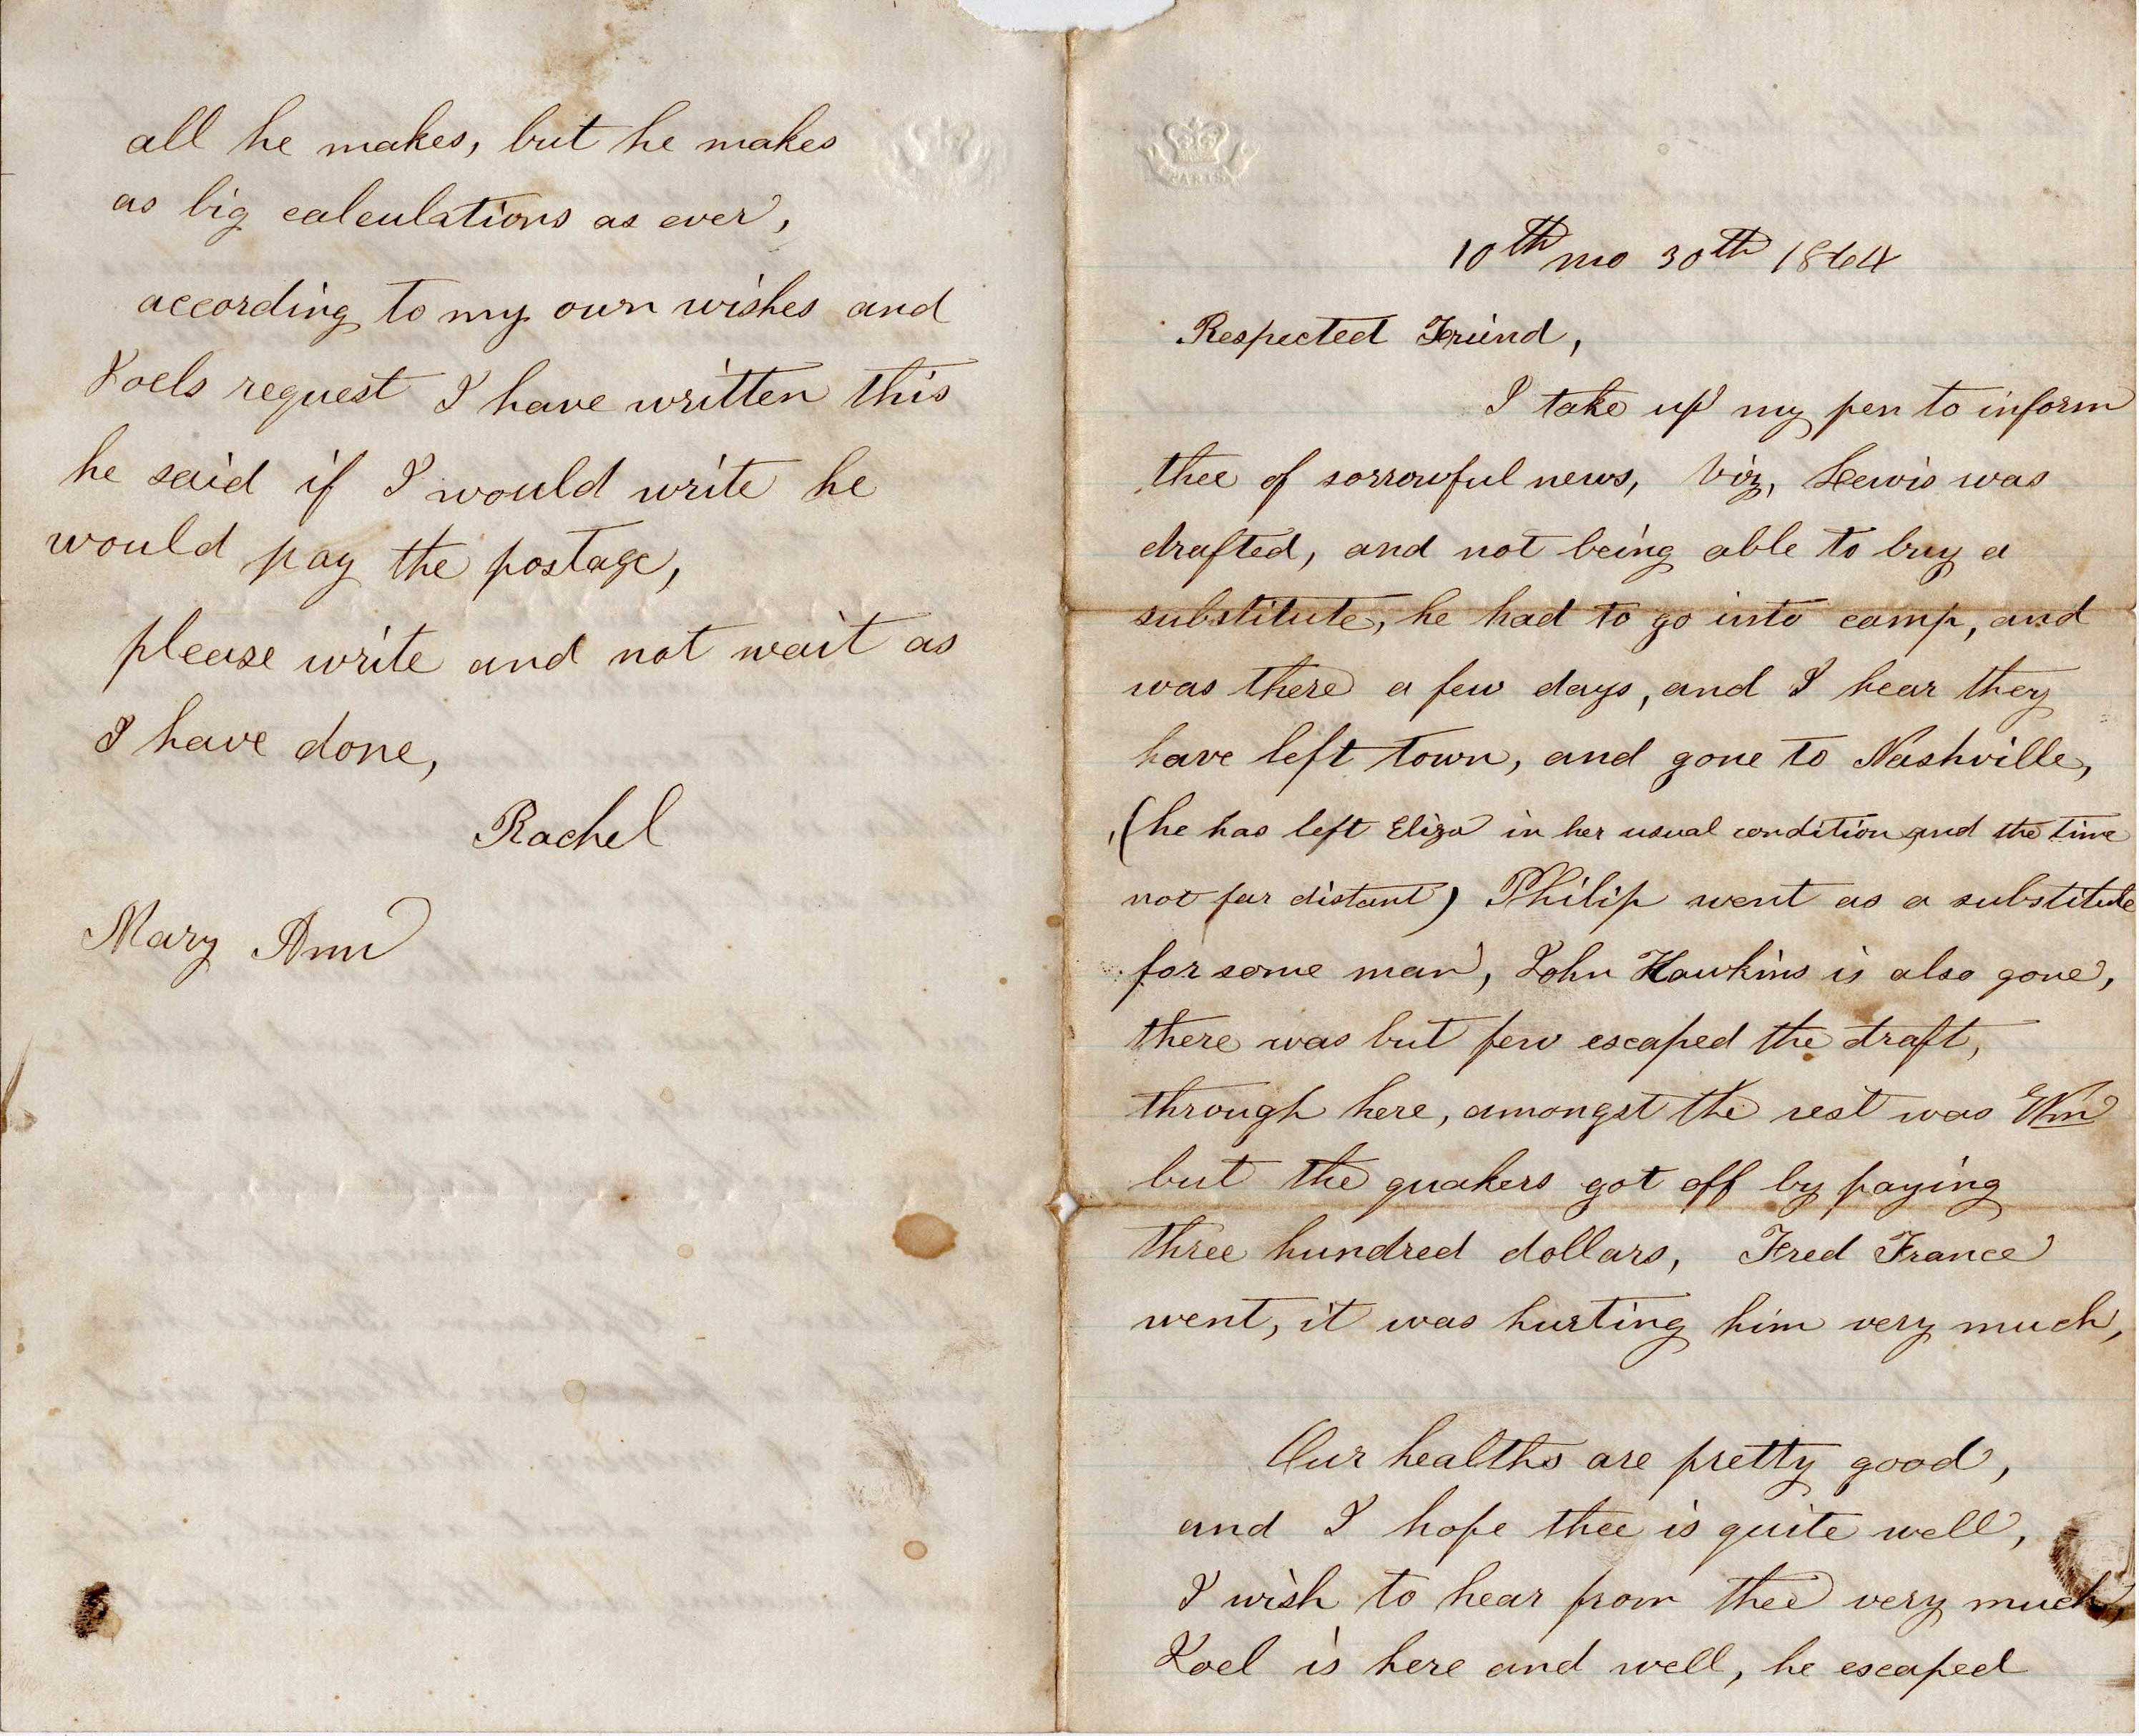 10th mo 30th 1864
Respected Friend,
I take up my pen to inform
thee of sorrowful news, Viz, Lewis was
drafted, and not being able to buy a
substitute, he had to go into camp, and
was there a few days, and I hear they
have left town, and gone to Nashville,
(he has left Eliza in her usual condition and the time
not far distant) Philip went as a substitute
for some man, John Hawkins is also gone,
there was but few escaped the draft,
through here, amongst the rest was Wm
but the quakers got off by paying
three hundred dollars, Fred France
went, it was hurting him very much,
Our healths are pretty good,
and I hope thee is quite well,
I wish to hear from thee very much,
Joel is here and well, he escaped
all he makes, but he makes
as big calculations as ever,
according to my own wishes and
Joels request I have written this
he said if I would write he
would pay the postage,
please write and not wait as
I have done,
Rachel
Mary Ann
PARIS